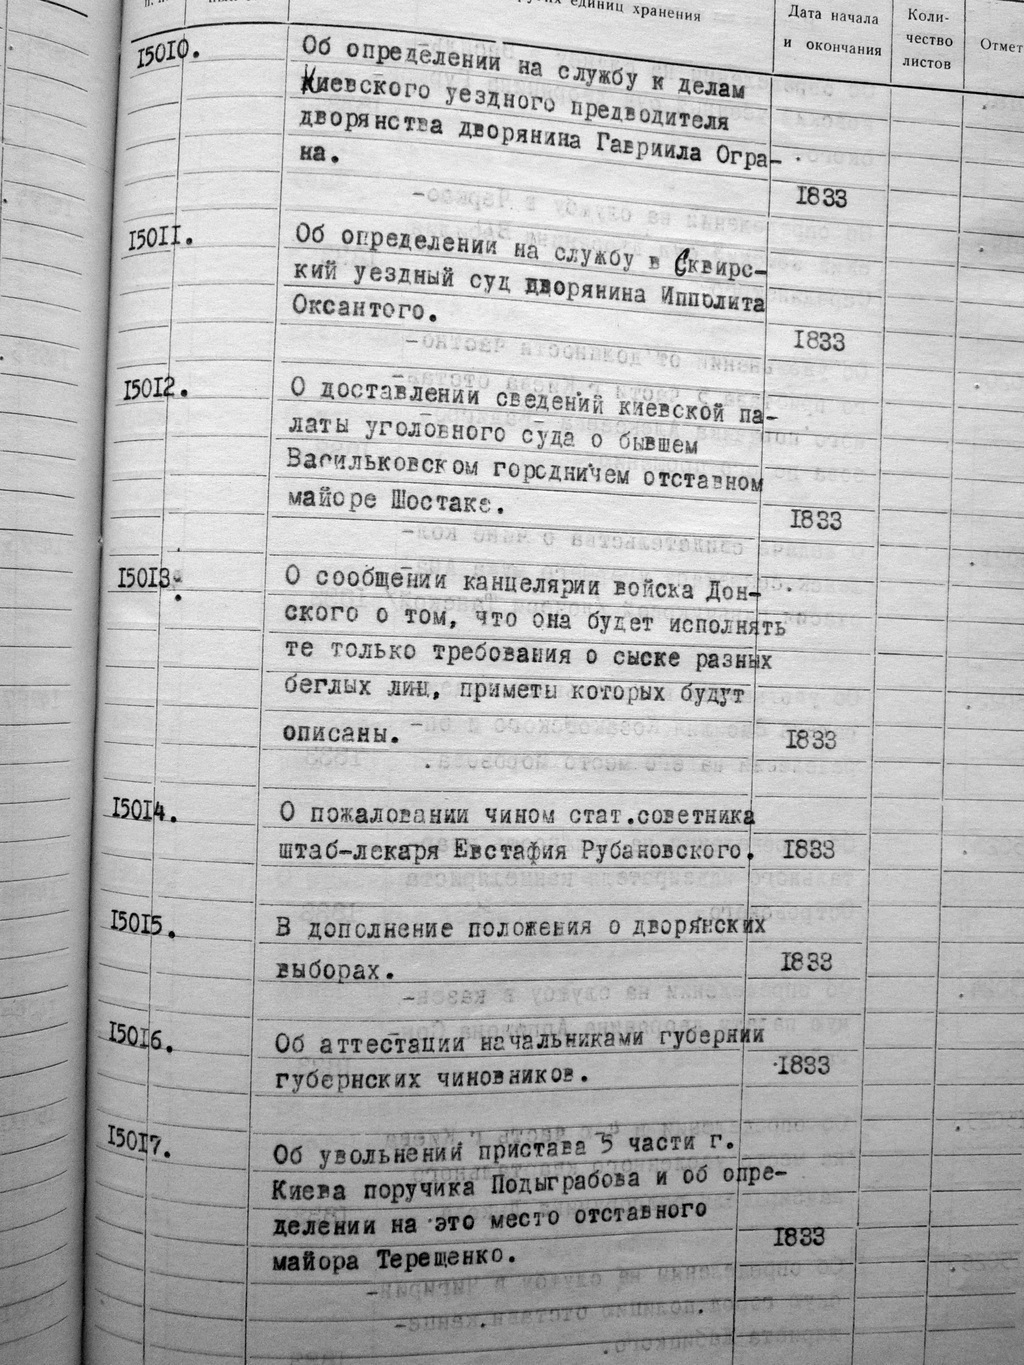 единиц хранения
Дата начала
и окончания
Коли-
чество
листов
Отмет
15010.
Об определении на службу к делам
Киевского уездного предводителя
дворянства дворянина Гавриила Огра-
на.
1833
15011.
Об определении на службу в Сквирс-
кий уездный суд дворянина Ипполита
Оксантого.
1833
15012.
О доставлении сведений киевской па-
латы уголовного суда о бывшем
Васильковском городничем отставном
майоре Шостаке.
1833
15013.
О сообщении канцелярии войска Дон-
ского о том, что она будет исполнять
те только требования о сыске разных
беглых лиц, приметы которых будут
описаны.
1833
15014.
О пожаловании чином стат.советника
штаб-лекаря Евстафия Рубановского.
1833
15015.
В дополнение положения о дворянских
выборах.
1833
15016.
Об аттестации начальниками губернии
губернских чиновников.
1833
15017.
Об увольнении пристава 5 части г.
Киева поручика Подыграбова и об опре-
делении на это место отставного
майора Терещенко.
1833